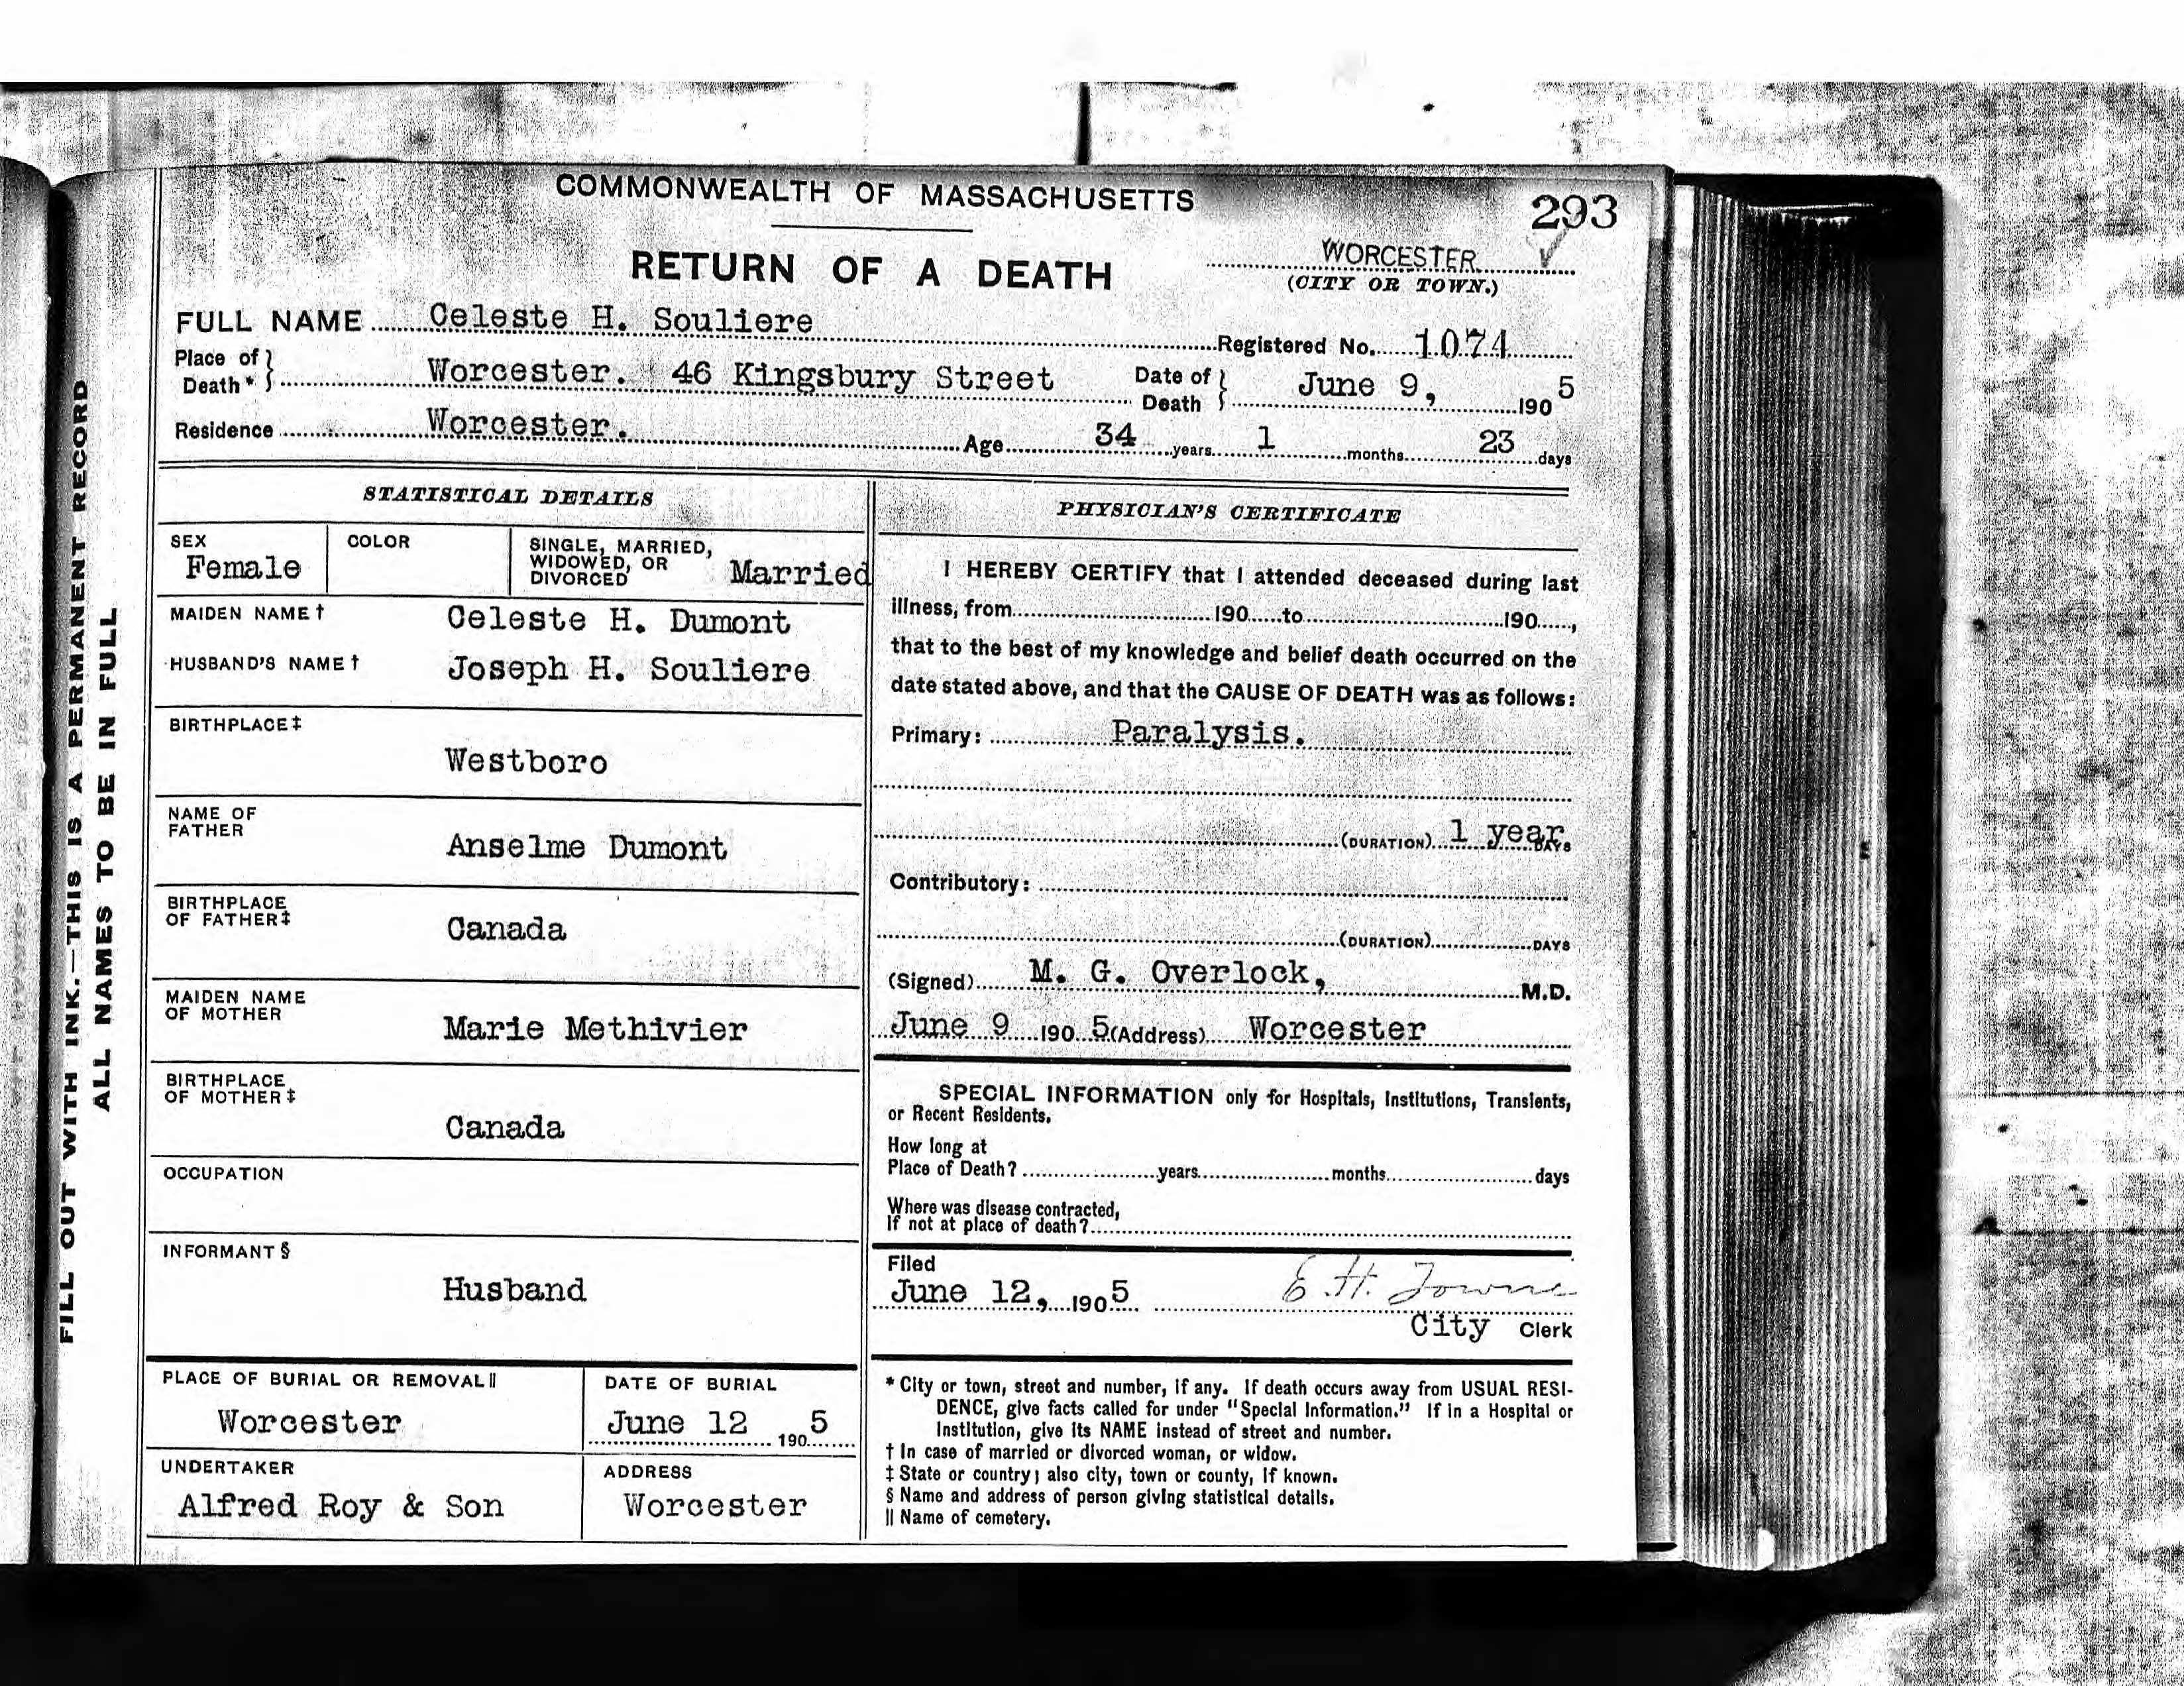 COMMONWEALTH OF MASSACHUSETTS
293
RETURN OF A DEATH
WORCESTER
(CITY OR TOWN.)
FULL NAME Celeste H. Souliere
Registered No. 1074
Place of Death * } Worcester. 46 Kingsbury Street
Date of Death } June 9, 1905
Residence Worcester.
Age 34 years 1 months 23 days
FILL OUT WITH INK.—THIS IS A PERMANENT RECORD
ALL NAMES TO BE IN FULL
STATISTICAL DETAILS
SEX
Female
COLOR
SINGLE, MARRIED,
WIDOWED, OR
DIVORCED
Married
MAIDEN NAME † Celeste H. Dumont
HUSBAND'S NAME † Joseph H. Souliere
BIRTHPLACE ‡
Westboro
NAME OF
FATHER
Anselme Dumont
BIRTHPLACE
OF FATHER ‡
Canada
MAIDEN NAME
OF MOTHER
Marie Methivier
BIRTHPLACE
OF MOTHER ‡
Canada
OCCUPATION
INFORMANT §
Husband
PLACE OF BURIAL OR REMOVAL ||
Worcester
DATE OF BURIAL
June 12 1905
UNDERTAKER
Alfred Roy & Son
ADDRESS
Worcester
PHYSICIAN'S CERTIFICATE
I HEREBY CERTIFY that I attended deceased during last
illness, from 190 to 190 ,
that to the best of my knowledge and belief death occurred on the
date stated above, and that the CAUSE OF DEATH was as follows:
Primary: Paralysis.
(DURATION) 1 year DAYS
Contributory:
(DURATION) DAYS
(Signed) M. G. Overlock, M.D.
June 9 1905 (Address) Worcester
SPECIAL INFORMATION only for Hospitals, Institutions, Transients,
or Recent Residents.
How long at
Place of Death? years months days
Where was disease contracted,
If not at place of death?
Filed
June 12, 1905 E. H. Towne
City Clerk
* City or town, street and number, if any. If death occurs away from USUAL RESI-
DENCE, give facts called for under "Special Information." If in a Hospital or
Institution, give its NAME instead of street and number.
† In case of married or divorced woman, or widow.
‡ State or country; also city, town or county, if known.
§ Name and address of person giving statistical details.
|| Name of cemetery.